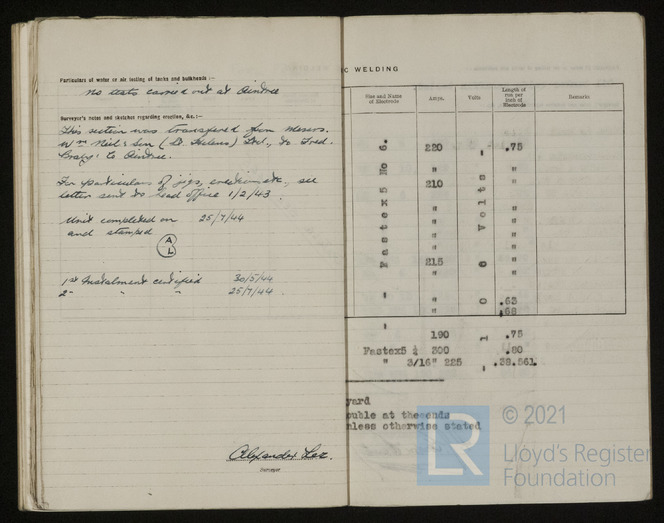 Particulars of water or air testing of tanks and bulkheads :—
No tests carried out at Aintree
Surveyor's notes and sketches regarding erection, &c. :—
This section was transferred from Messrs.
Wm Neil & Son (St. Helens) Ltd., to Fred.
Craig, to Aintree.
For particulars of jigs, erection etc., see
letter sent to head office 1/2/43.
Unit completed on 25/7/44
and stamped
A
L
1st Instalment certified 30/5/44
2nd " " 25/7/44.
Alexander Lee
Surveyor
C WELDING
Size and Name of Electrode
Amps.
Volts
Length of run per inch of Electrode
Remarks
Fastex5 No 6.
100 Volts
220 .75
" "
210 "
" "
" "
" "
" "
215 "
" "
" .63
.68
190 .75
Fastex5 ¼ 300 .80
" 3/16" 225 .39.561
yard
ouble at the ends
nless otherwise stated
LR
© 2021
Lloyd's Register
Foundation